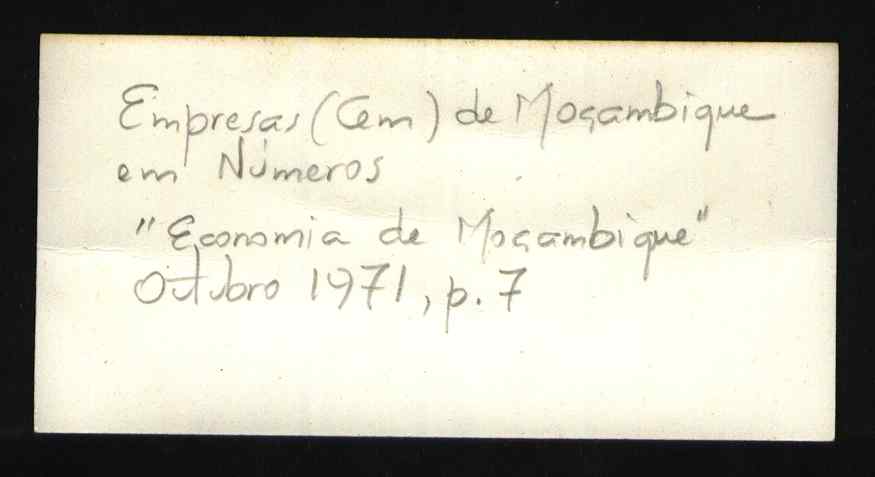 Empresas (Cem) de Moçambique
em Números
"Economia de Moçambique"
Outubro 1971, p. 7